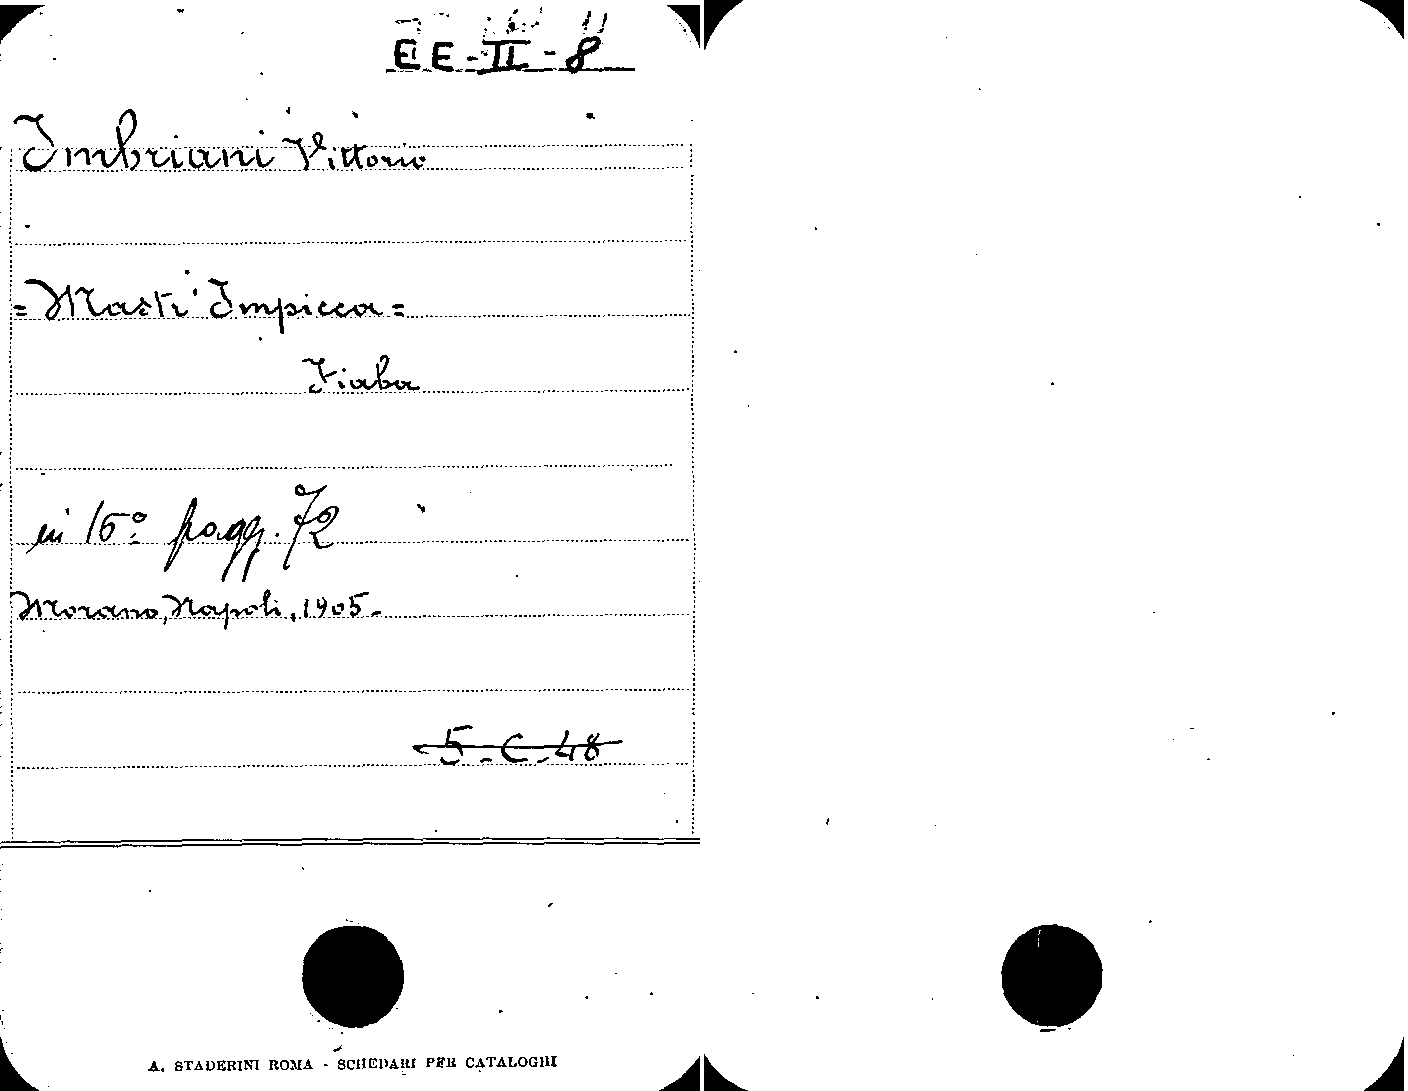 EE-II-8
Imbriani Vittorio
=Mastr' Impicca=
Fiaba
in 16º pagg. 72
Morano, Napoli, 1905.
5-C-48
A. STADERINI ROMA - SCHEDARI PER CATALOGHI